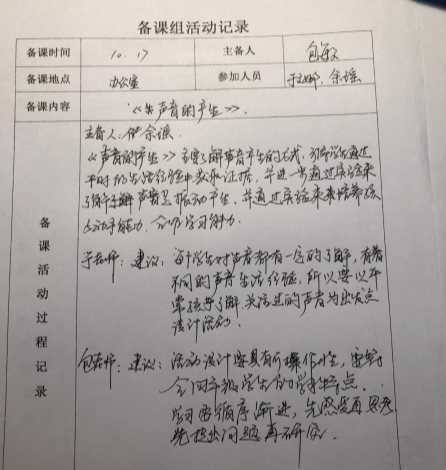 备课组活动记录
备课时间 10.17 主备人 包敏
备课地点 办公室 参加人员 于 余瑶
备课内容 《声音的产生》
主备人: 余瑶
《声音的产生》主要了解声音产生的方式, 引导学生通过
平时的生活经验中获取证据, 并进一步通过实验来
了解 声音是振动产生, 并通过实验来培养孩
动手能力、合作学习能力.
备课活动过程记录
于老师: 建议: 每个学生对声音都有一定的了解, 有着
不同的声音生活经验, 所以要以平
常孩子了解、关注过的声音为出发点
设计活动.
包老师: 建议: 活动设计要具有可操作性, 要符
合四年级学生的学习特点.
学习要循序渐进, 先感受再思考
先提出问题再研究.